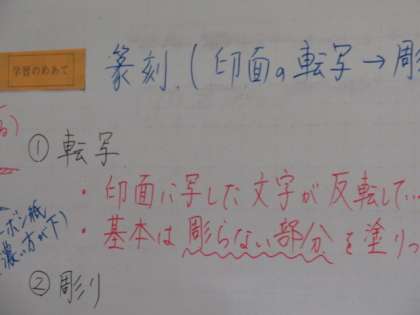 学習のめあて
篆刻.(印面の転写→彫
る)
① 転写
・印面に写した文字が反転して…
ーボン紙
・基本は彫らない部分を塗りつ
濃い方が下)
② 彫り